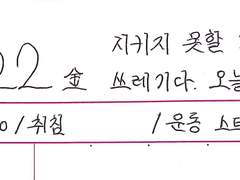 지키지 못할
22 金 쓰레기다. 오늘
0/취침 /운동 스트